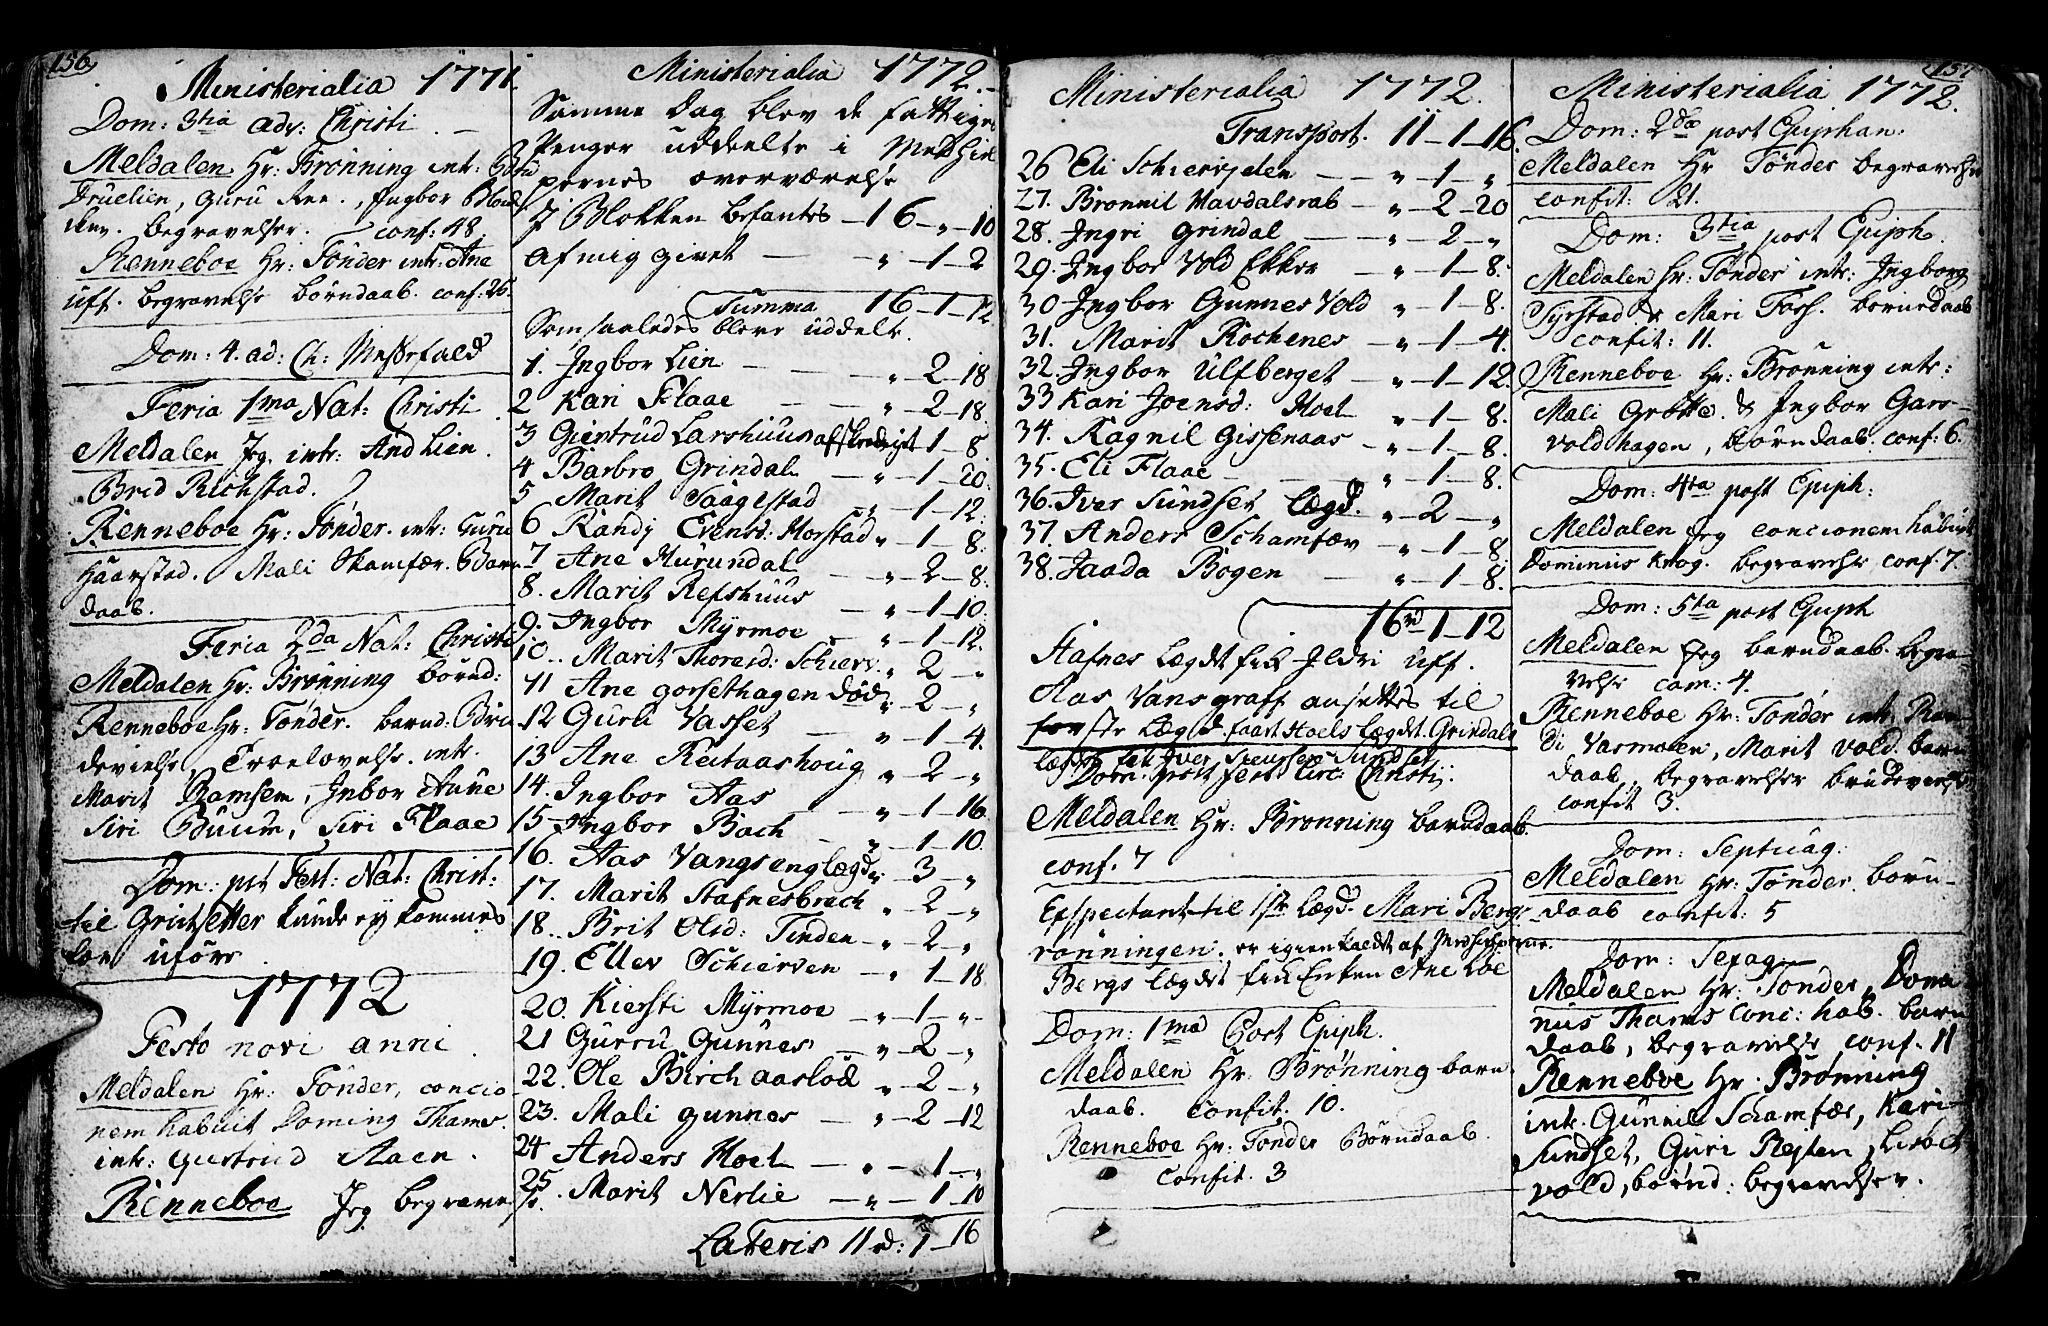 156
Ministerialia 1771.
Dom: 3tia adv: Christi
Meldalen Hr: Brønning intr:
Druelien, Guru Ree., Ingbor
begravelser. conf: 48.
Renneboe Hr: Tønder intr: Ane
Uff. begravelse børndaab. conf: 26.
Dom: 4. ad: Ch: Messefald
Feria 1ma Nat: Christi
Meldalen Jeg. intr: And Lien.
Brid Richstad.
Renneboe Hr: Tønder. intr: Guru
Haarstad. Mali Skamfær. Barn
daab.
Feria 2da Nat: Christi
Meldalen Hr: Brønning børnd:
Renneboe Hr: Tønder. barnd: Bru
devielse, Troelovelse. intr.
Marit Ramsem, Inbor Aune
Siri Buum, Siri Flaae
Dom: pst Fest: Nat: Christ:
til Grütsetter kunde ey kommes
for uføre
1772
Festo novi anni
Meldalen Hr: Tønder, concio
nem habuit Doming Thams.
intr: Giertrud Aaen.
Renneboe Jeg begravels
Ministerialia 1772.
Samme Dag blev de fattiges
Penger uddeelte i Medhiel
pernes overværelse
J Blokken befantes – 16 – „ – 10
Af mig givet – „ – 1 – 2
Summa 16 – 1 – 12
Som saaledes blev uddelt.
1. Ingbor Lien – „ – 2 – 18
2 Kari Flaae – „ – 2 – 18.
3 Giertrud Larshuus afskrediget – 1 – 8
4 Barbro Grindal – „ – 1 – 20.
5 Marit Saagestad „ – 1 – 12.
6 Randj Evensd: Horstad „ – 1 – 8.
7 Ane Hurundal – „ – 2 – 8.
8. Marit Refshuus – „ – 1 – 10.
9. Ingbor Myrmoe – „ – 1 – 12.
10. Marit Thoresd: Schierv „ – 2 – „
11 Ane Gorsethagen død „ – 2 – „
12 Guru Vasset – „ – 1 – 4.
13 Ane Reitaashoug „ – 2 – „
14. Ingbor Aas – „ – 1 – 16
15 – Ingbor Bach – „ – 1 – 10.
16. Aas Vangseng lægd „ – 3 – „
17. Marit Stafnesbrech „ – 2 – „
18. Brit Olsd: Tinden – „ – 2 – „
19. Ellev Schierven – „ – 1 – 18
20. Kiersti Myrmoe – „ – 1 – „
21 Gurru Gunnes – „ – 2 – „
22. Ole Birchaasløb „ – 2 – „
23. Mali Gunnes – „ – 2 – 12
24 Anders Hoel – „ – 1 – „
25. Marit Nerlie – „ – 1 – 10
Lateris 11 rd: 1 – 16
Ministerialia 1772.
Transport. 11 – 1 – 16.
26 Eli Schiervjelen – „ – 1 – „
27. Brønnil Havdalsrab – „ – 2 – 20
28. Jngri Grindal – „ – 2 – „
29. Jngbor Vold Ekker – „ – 1 – 8.
30 Jngbor Gunnes Vold „ – 1 – 8.
31. Marit Kochenes – „ – 1 – 4.
32. Jngbor Ulfberget – „ – 1 – 12.
33 Kari Joensd: Hoel „ – 1 – 8.
34. Ragnil Gissenaas – „ – 1 – 8.
35. Eli Flaae – „ – 1 – 8.
36. Iver Sundset Lægd. „ – 2 – „
37. Anders Schamfær – „ – 1 – 8
38. Jaada Bogen – „ – 1 – 8.
16 rd 1 – 12
Stafnes Lægdt fik Jldri Uff.
Aas Vansgraff ansættes til
første Lægd. faart Hoels lægdt. Grindals
lægdt fik Iver Sundset
Dom: post fest Circ: Christij.
Meldalen Hr: Brønning barndaab.
conf. 7
Exspectant til 1ste lægd. Mari Bergs
rønningen. er igien kaldet af Medhielperne.
Bergs lægdt fik Enken Ane Loe
Dom: 1ma Post Epiph.
Meldalen Hr: Brønning barn
daab. confit. 10.
Renneboe Hr: Tønder Børndaab.
Confit. 3
157
Ministerialia 1772.
Dom: 2da post Epiphan:
Meldalen Hr Tønder begravelse
confit: 21.
Dom: 3tia post Epiph.
Meldalen Hr: Tønder intr: Jngborg
Syrstad & Mari Foss. børnedaab
confit: 11.
Renneboe Hr: Brønning intr:
Mali Grøtte. & Jngbor Gars-
voldhagen, børndaab. conf: 6.
Dom: 4ta post Epiph:
Meldalen Jeg concionem habuit
Dominus Krog. begravelse conf: 7.
Dom: 5ta post Epiph
Meldalen Jeg barndaab. begra-
velse com: 4.
Renneboe Hr: Tønder intr: Ran
di Varmoen, Marit Vold. barn
daab, begravelser brudevielse
confit 3.
Dom: Septuag:
Meldalen Hr: Tønder. børn-
daab confit: 5
Dom: Sexag
Meldalen Hr: Tønder, Domi
nus Thams Conc: hab. barn
daab, begravelse conf. 11
Renneboe Hr. Brønning
intr. Gunnil Schamfær, Kari
Sundset, Guri Resten, Lisbet
Vold, børnd: begravelser.